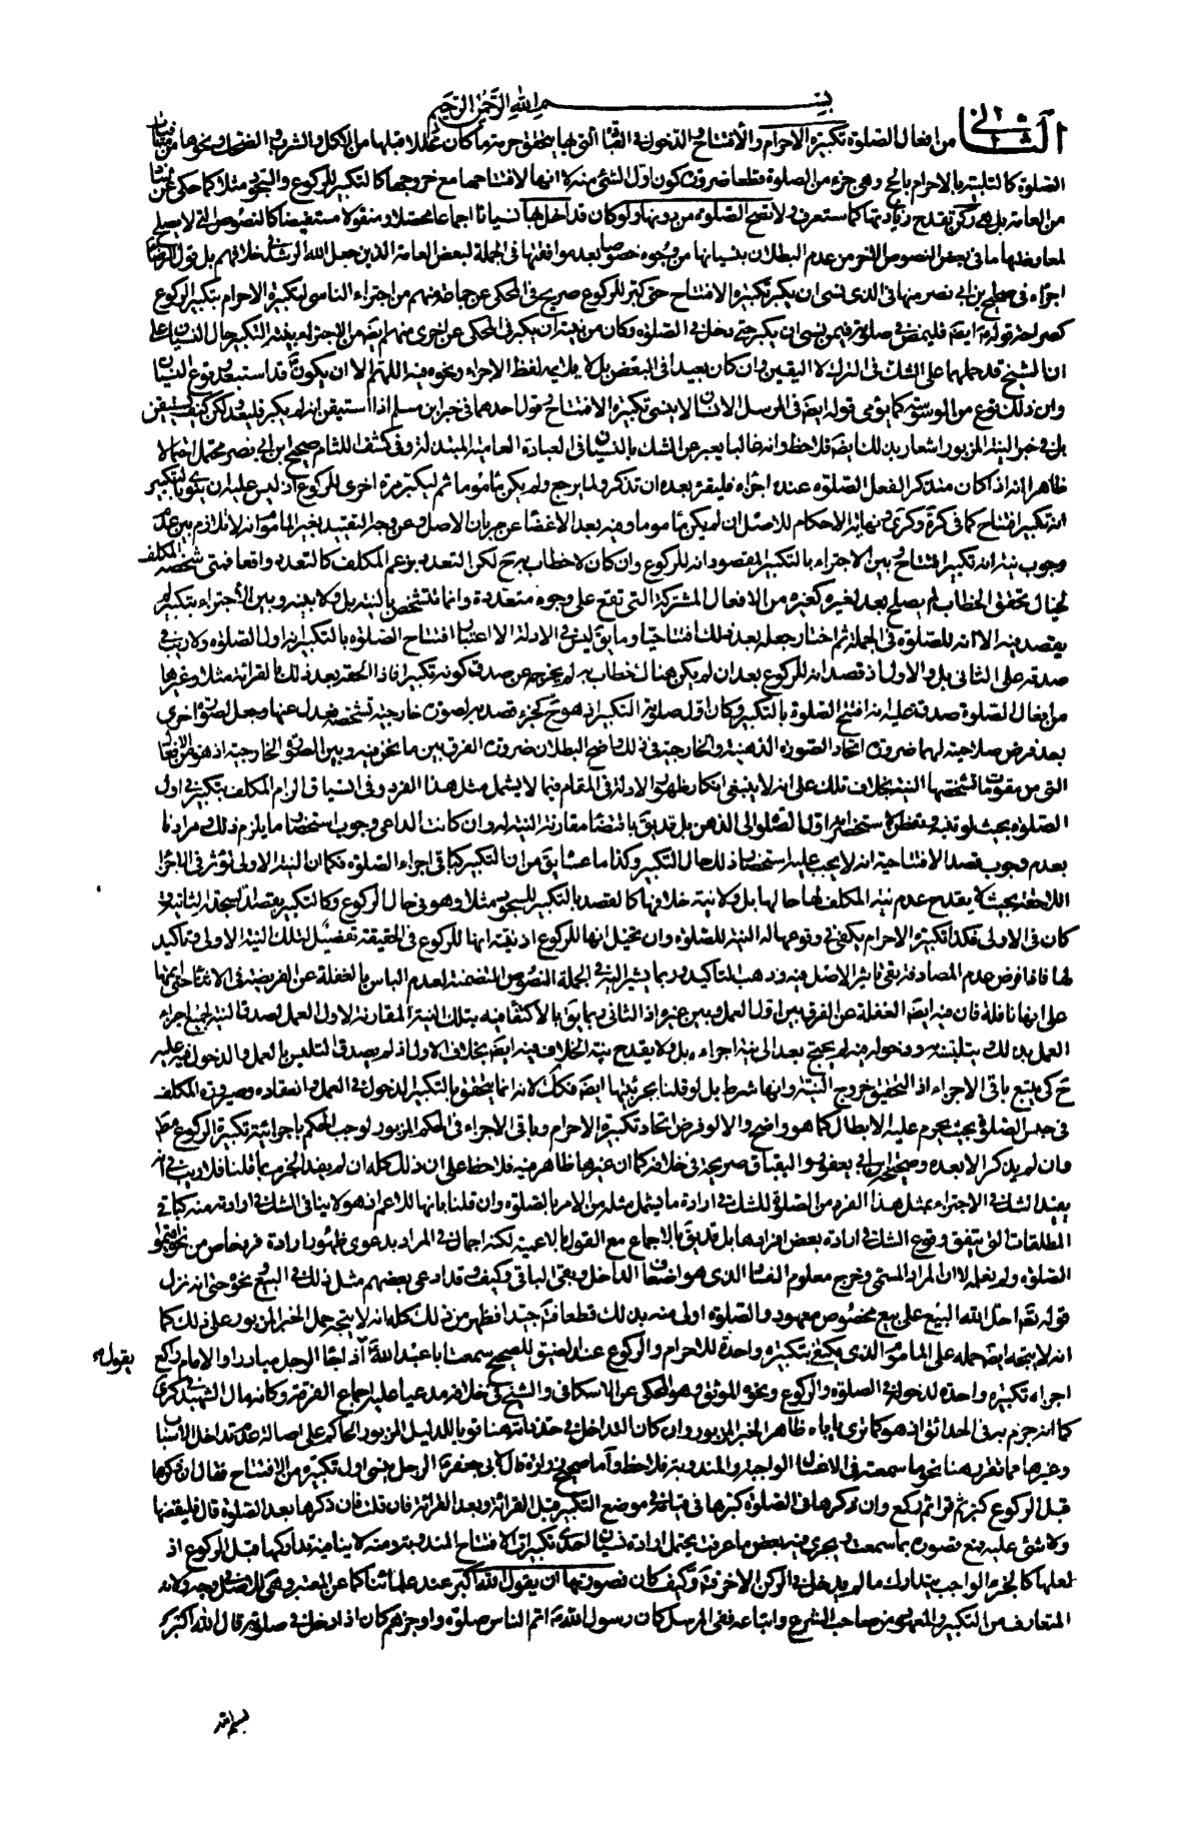 بسم الله الرحمن الرحيم
الثاني من افعال الصلوة تكبيرة الاحرام والافتتاح والدخول التي بها يتحقق حرمة ما كان محللا قبلها من الاكل والشرب والضحك ونحوها من
الصلوة كالتلبية بالاحرام بالحج وهي جزء من الصلوة قطعا ضرورة كون اول الشئ منه لا انها لافتتاحها مع خروجها كالتكبير للركوع والسجود مثلا كما حكى عن
من العامة بل هي ركن تقدح زيادتها كما ستعرف ولا تصح الصلوة من دونها ولو كان قد اخل بها نسيانا اجماعا محصلا ومنقولا مستفيضا كالنصوص التي لا يصلح
لمعارضتها ما في بعض النصوص الاخر من عدم البطلان بنسيانها من وجوه خصوصا بعد موافقتها في الجملة لبعض العامة الذين جعل الله الرشد في خلافهم بل قول الرضا
اجزاه في صحيح ابن ابي نصر منها في الذي نسى ان يكبر تكبيرة الافتتاح حتى كبر للركوع صريح في المحكى عن جماعة منهم من اجتزاء الناسي لتكبيرة الاحرام بتكبير الركوع
فليمض في صلوته فيمن نسى ان يكبر حتى دخل في الصلوة وكان من نيته ان يكبر في المحكى عن اخرى منهم ايضا من الاجتزاء بنية التكبير حال النسيان على
ان الشيخ قد حملها على الشك في الترك لا اليقين وان كان بعيدا في البعض بل لا يلايم لفظ الاجزاء ونحوه فيه اللهم الا ان يكون قد استبعد وقوع النسيان
وان ذلك نوع من الوسوسة كما يؤمى قوله ايضا في المرسل الانسان لا ينسى تكبيرة الافتتاح وقول احدهما في خبر ابن مسلم اذا استيقن انه لم يكبر فليعد ولكن كيف يستيقن
بل في خبر النية المزبور اشعار بذلك ايضا فلاحظ وانه غالبا يعبر عن الشك بالنسيان في العبارة العامية المبتذلة وفي كشف اللثام صحيح ابن ابي نصر محتمل احتمالا
ظاهرا انه اذا كان متذكرا لفعل الصلوة عنده اجزاه فليقرء بعده ان تذكر ولما يركع ولم يكن مأموما ثم ليكبر مرة اخرى للركوع اذ ليس عليه ان ينوي بالتكبير
انه تكبير افتتاح كما في كرة وكرى ونهاية الاحكام للاصل ان لم يكن مأموما وفيه بعد الاغضا عن جريان الاصل وعن وجه التقييد بغير المأموم انه لا تلازم بين عدم
وجوب نية انه تكبير افتتاح وبين الاجتزاء بالتكبير المقصود انه للركوع وان كان لا خطاب به ح لكن التعدد بزعم المكلف كالتعدد واقعا فمتى شخصه المكلف
لخيال تحقق الخطاب لم يصلح بعد لغيره كغيره من الافعال المشتركة التي تقع على وجوه متعددة وانما تتشخص بالنية بل ولا بينه وبين الاجتزاء بتكبير لم
يقصد منه الا انه للصلوة في الجملة ثم اختار جعله بعد ذلك افتتاحيا وما بق ليس في الادلة الا اعتبار افتتاح الصلوة بالتكبير انه اول الصلوة ولا ريب في
صدقه على الثاني بل والاول اذ قصد انه للركوع بعد ان لم يكن هناك خطاب به لم يخرجه عن صدق كونه تكبيرا فاذا الحقه بعد ذلك بالقرائة مثلا وغيرها
من افعال الصلوة صدق عليه انه افتتح الصلوة بالتكبير وكان اول صلوته التكبير
بعد فرض صلاحيته لهما ضرورة اتحاد الصورة الذهنية والخارجية في ذلك واضح البطلان ضرورة الفرق بين ما نحن فيه وبين الصورة الخارجية اذ هو من الافعال
التي من مقومات تشخصها النية بخلاف تلك على انه لا ينبغي انكار ظهور الادلة في المقام فيما لا يشمل مثل هذا الفرد وفي انسياق الزام المكلف بتكبير في اول
الصلوة بحيث لو تنبه وتفطن لاستحضر انه اول الصلوة في الذهن
بعدم وجوب قصد الافتتاحية انه لا يجب عليه استحضار ذلك حال التكبير وكذا ما عساه يق من ان التكبير كباقي اجزاء الصلوة فكما ان النية الاولى تؤثر في الاجزاء
اللاحقة بحيث لا يقدح عدم نية المكلف لها حالها بل ولا نية خلافها كالقصد بالتكبير للسجود مثلا وهو في حال الركوع
كان في الاولى فكذا تكبيرة الاحرام يكفي في وقوعها له النية للصلوة وان تخيل انها للركوع اذ نيته انها للركوع في الحقيقة تفصيل لتلك النية الاولى وتأكيد
لها فاذا فرض عدم المصادفة بقي تأثير الاصل فيه وذهب التأكيد وربما يشير اليه في الجملة النصوص المتضمنة لعدم الباس بالغفلة عن الفريضة في الاثناء حتى اتمها
على انها نافلة فان فيه ايضا الغفلة عن الفرق بين اول العمل وبين غيره
العمل بذلك بتلبسه ودخوله فيه لم يحتج بعد الى نية اجزاء بل ولا يقدح نية الخلاف فيه ايضا بخلاف الاول اذ لم يصدق التلبس بالعمل والدخول فيه عليه
ح كي يتبع باقي الاجزاء اذ التحقيق خروج النية وانها شرط بل لو قلنا بجزئيتها ايضا فكك لانه انما يتحقق بالتكبير الدخول في العمل وانعقاده وصيرورة المكلف
في حبس الصلوة بحيث يحرم عليه الابطال كما هو واضح والا لو فرض اتحاد تكبيرة الاحرام وباقي الاجزاء في الحكم المزبور لوجب الحكم باجزائية تكبيرة الركوع
وان لم يذكر الا بعده وصحيحة ابن ابي يعفور والبقباق صريحة في خلافه كما ان غيرها ظاهر فيه فلاحظ على ان ذلك كله ان لم يفد الجزم بما قلنا فلا ريب في انه
يفيد الشك في الاجتزاء بمثل هذا الفرد من الصلوة للشك في ارادة ما يشمل مثله من الامر بالصلوة وان قلنا بانها للاعم اذ هو لا ينافي الشك في ارادته منه كباقي
المطلقات التي يتفق وقوع الشك في ارادة بعض افرادها
الصلوة ولم نعلمه لا ان المراد المسمى وخرج معلوم الفساد الذي هو اضعاف الداخل وبقى الباقي وكيف وقد ادعى بعضهم مثل ذلك في البيع ونحوه حتى انه نزل
قوله تعالى احل الله البيع على بيع مخصوص معهود والصلوة اولى منه بذلك قطعا فتأمل جيدا فظهر من ذلك كله انه لا يتجه حمل الخبر المزبور على ذلك كما
انه لا يتجه ايضا حمله على المأموم الذي يكتفي بتكبيرة واحدة للاحرام والركوع عند الضيق للصحيح سمعت ابا عبد الله يقول اذا جاء الرجل مبادرا والامام راكع
اجزاه تكبيرة واحدة لدخوله في الصلوة والركوع ونحوه الموثق وهو المحكى عن الاسكافي والشيخ في خلافه مدعيا عليه اجماع الفرقة وكانه مال الشهيد في كرى
كما انه جزم به في الحدائق اذ هو كما ترى ياباه ظاهر الخبر المزبور وان كان التداخل في حد ذاته هنا قويا للدليل المزبور الحاكم على اصالة عدم تداخل الاسباب
وغيرها مما تقرر هنا نحو ما سمعته في الاغسال الواجبة والمندوبة فلاحظ واما صحيح زرارة قال لابي جعفر الرجل ينسى اول تكبيرة من الافتتاح فقال ان ذكرها
قبل الركوع كبر ثم قرء ثم ركع وان ذكرها في الصلوة كبرها في قيامه في موضع التكبير قبل القرائة وبعد القرائة قلت فان ذكرها بعد الصلوة قال فليقضها
ولا شئ عليه فمع قصوره بما سمعت ويجري فيه بعض ما عرفت يحتمل ارادة نسيان احدى تكبيرات الافتتاح المندوبة ومنه لا ينافيه تداركها قبل الركوع اذ
لعلها كالجزء الواجب يتدارك ما لم يدخل في الركن الاخر فتأمل وكيف كان فصورتها ان يقول الله اكبر عند علمائنا كما عن المعتبر وهي للاصل في وجه ولانه
المتعارف من التكبير والمعهود من صاحب الشرع واتباعه ففي المرسل كان رسول الله اتم الناس صلوة واوجزهم كان اذا دخل في صلوته قال الله اكبر
بسم الله